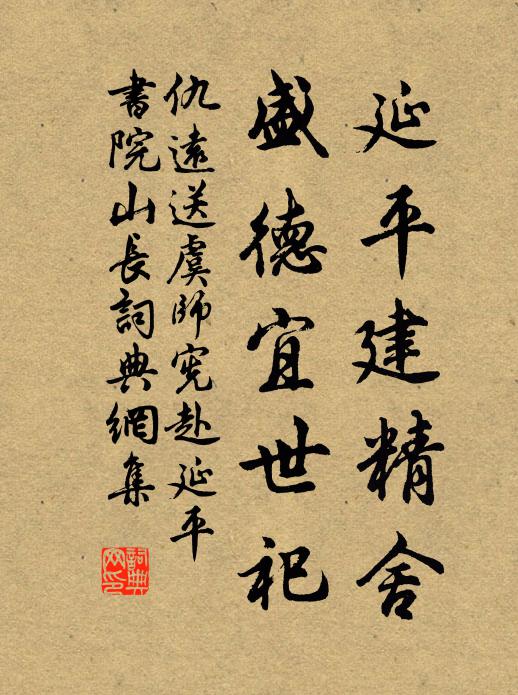 延平建精舍
盛德宜世祀
仇遠送虞師寃赴延平
書院山長詞典網集
詞典网印